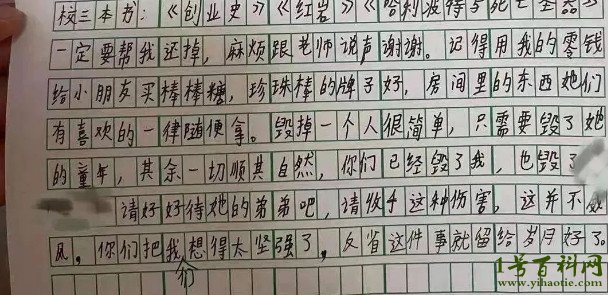 校三本书：《创业史》《红岩》《哈利波特与死亡圣器》
一定要帮我还掉，麻烦跟老师说声谢谢。记得用我的零钱
给小朋友买棒棒糖，珍珠棒的牌子好，房间里的东西她们
有喜欢的一律随便拿。毁掉一个人很简单，只需要毁了她
的童年，其余一切顺其自然，你们已经毁了我，也毁了
请好好待她的弟弟吧，请收手这种伤害，这并不威
风。你们把我们想得太坚强了，反省这件事就留给岁月好了。
1号百科网
www.yihaotie.com